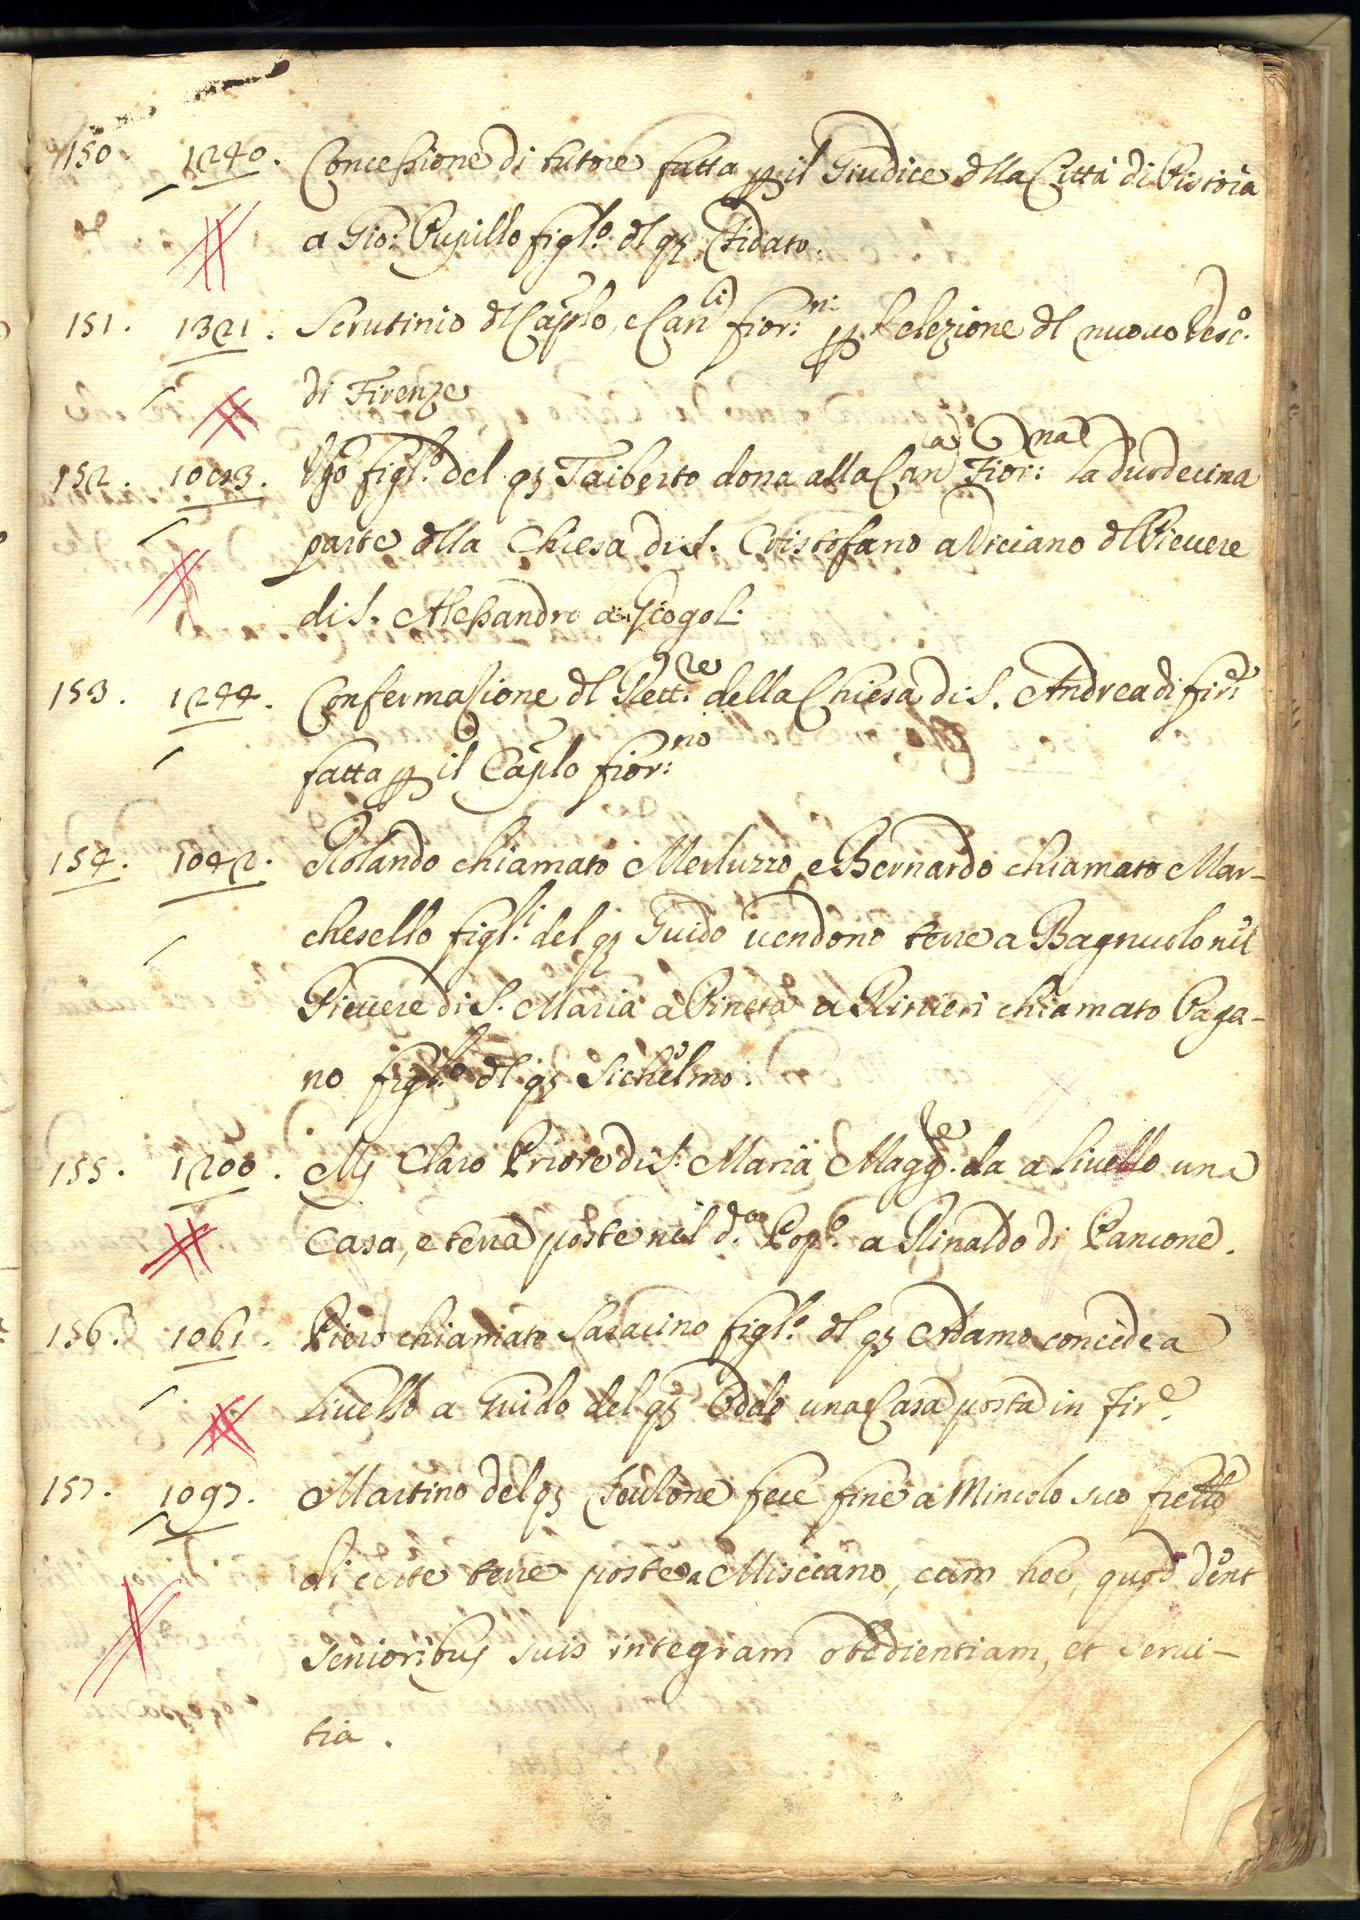 150. 1240. Concessione di tutore fatta p il Giudice dlla Città di Pistoia
a Gio: Pupillo figl.o dl q
151. 1321. Scrutinio dl Caplo, e Can.li fior.ni p l'elezione dl nuovo Vesc.o
di Firenze
152. Ugo figl.o del q Taiberto dona alla Can.ca Fior:na la duodecima
parte dlla Chiesa di S. Cristofano a Viciano dl Pievere
di S. Alessandro a Giogol:
153. 1244. Confermasione dl Rett.re della Chiesa di S. Andrea di fir.e
fatta p il Caplo fior:no
154. 1042. Rolando chiamato Merluzzo e Bernardo chiamato Mar-
chesello figl.i del q Guido vendono terre a Bagnuolo nel
Pievere di S. Maria a Pineta a Rinieri chiamato Paga-
no figl.o dl q Sichelmo.
155. 1200. Claro Priore di S. Maria Magg.re da a livello una
Casa, e terra poste nel d.o Pop.o a Rinaldo di Pancone.
156. 1061. Piero chiamato Saracino figl.o dl q Adamo concede a
Livello a Guido del q Oddo una Casa posta in Fir.e
157. 1097. Martino del q fece fine a Minculo suo
di certe terre poste a Misciano, cum hoc, quod dent
Senioribus suis integram obedientiam, et servi-
tia.